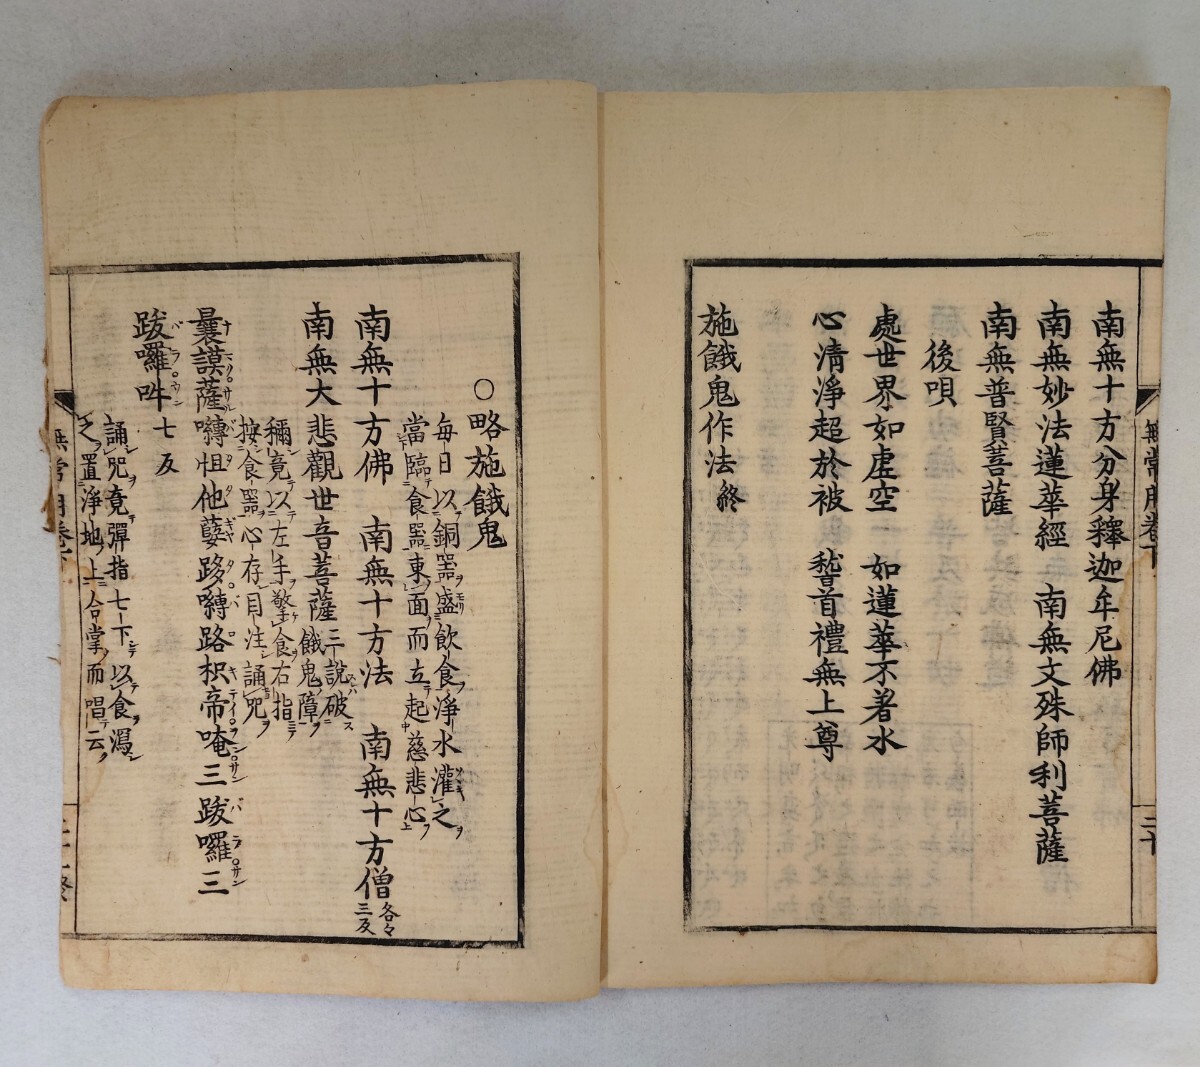 無常用卷下
三十
南無十方分身釋迦牟尼佛
南無妙法蓮華經　南無文殊師利菩薩
南無普賢菩薩
後唄
處世界如虛空　如蓮華不著水
心清淨超於彼　稽首禮無上尊
施餓鬼作法終
○略施餓鬼
每日以銅器盛飲食淨水灌之
當臨食器東面而立起慈悲心
南無十方佛　南無十方法　南無十方僧各々三反
南無大悲觀世音菩薩三說破餓鬼障
稱竟以左手擎食右指
按食器心存目注誦咒
曩謨薩嚩怛他蘖跢嚩路枳帝唵三跋囉三
跋囉吽七反
誦咒竟彈指七下以食瀉
之置淨地上合掌而唱云
無常用卷下